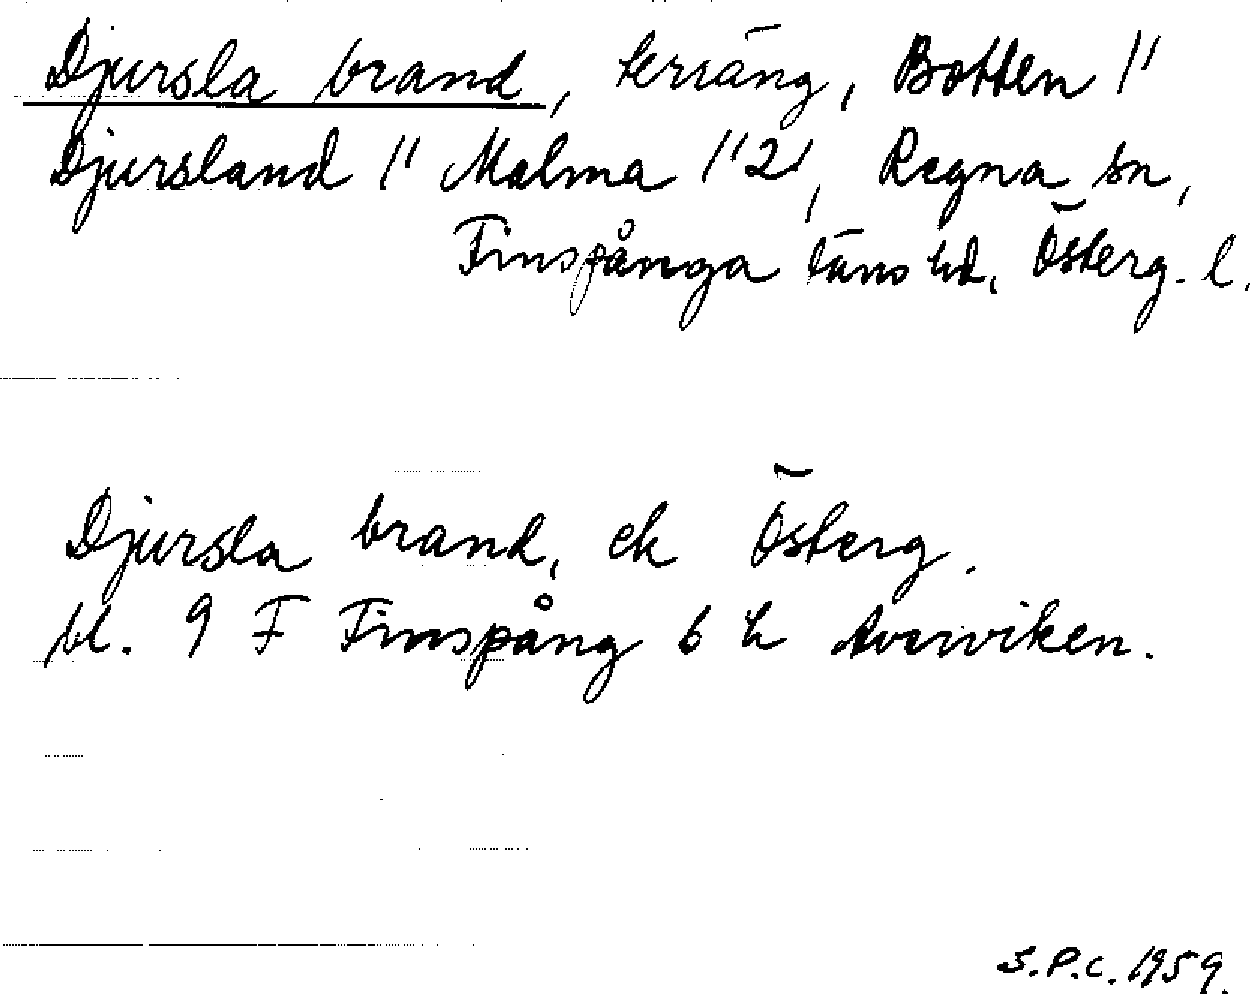 Djursla brand, terräng, Botten 1'
Djursland 1' Malma 1'2', Regna sn,
Finspånga läns hd, Österg. l.
Djursla brand, ek Österg.
bl. 9 F Finspång 6 h Averviken.
S.P.C. 1959.